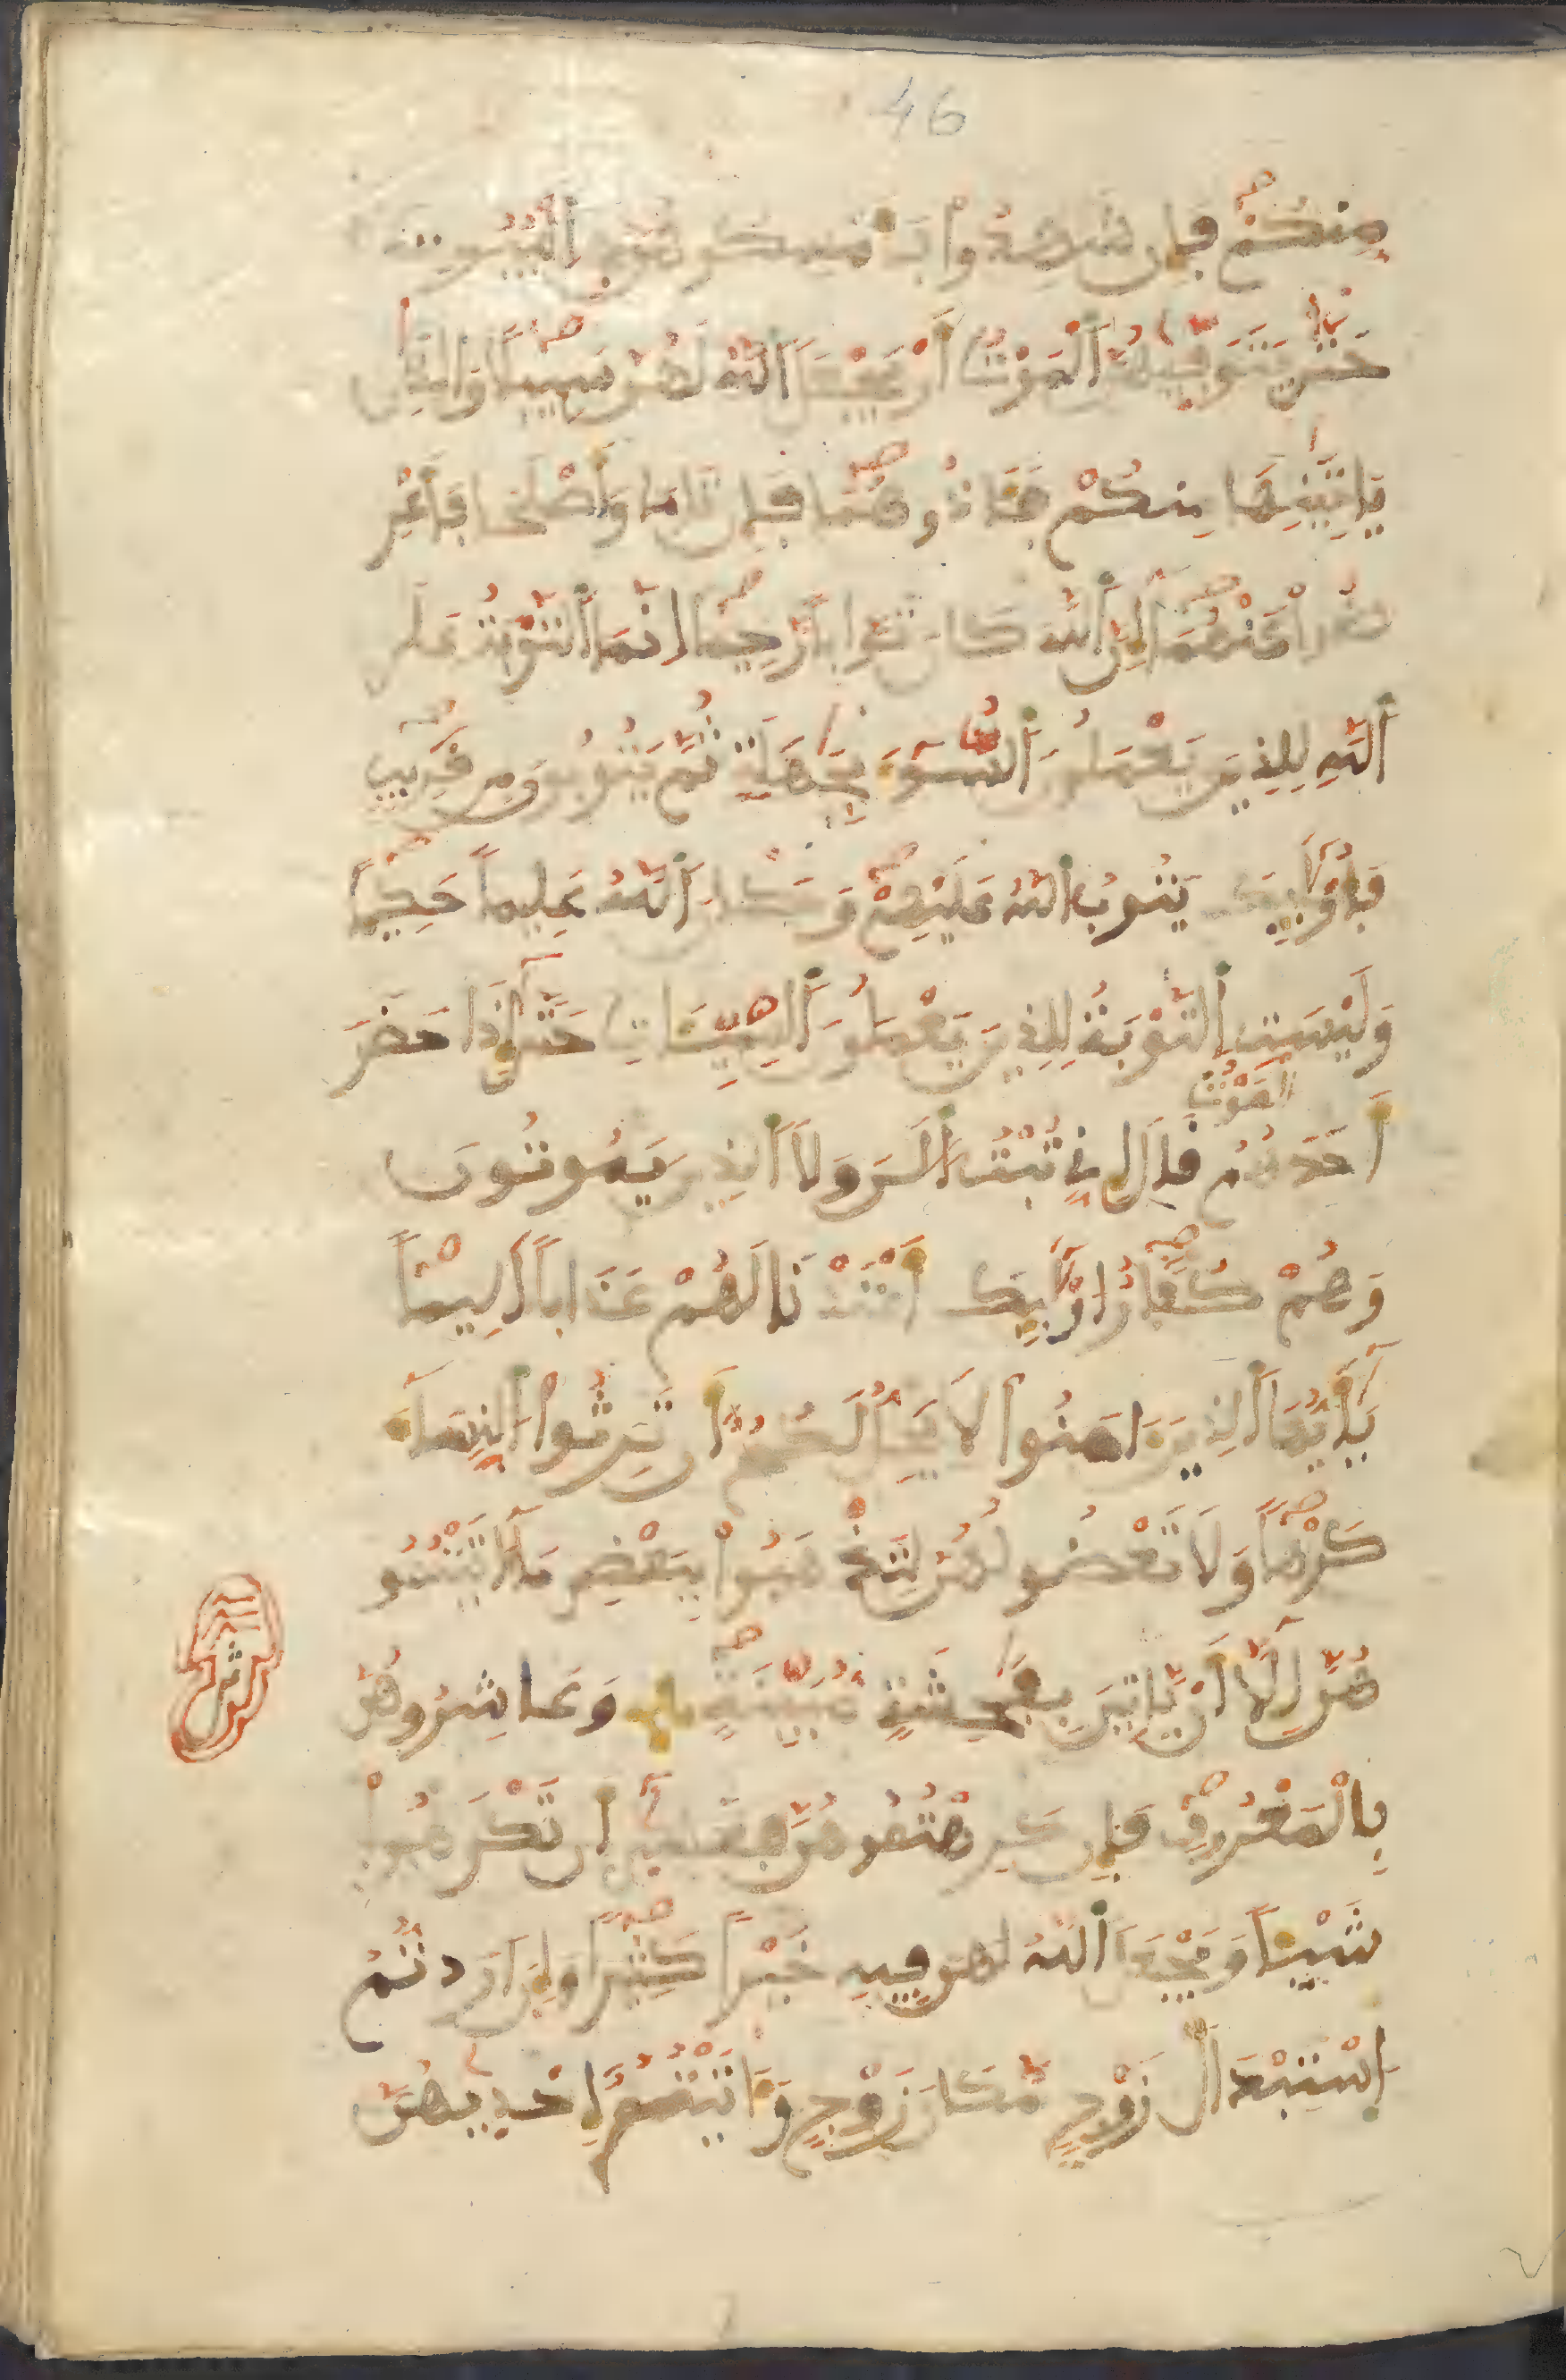 46
مِنكُمْ فَإِن شَهِدُوا۟ فَأَمْسِكُوهُنَّ فِى ٱلْبُيُوتِ
حَتَّىٰ يَتَوَفَّيٰهُنَّ ٱلْمَوْتُ أَوْ يَجْعَلَ ٱللَّهُ لَهُنَّ سَبِيلًا وَٱلذَٰنِ
يَاتِيَٰنِهَا مِنكُمْ فَـَٔاذُوهُمَا فَإِن تَابَا وَأَصْلَحَا فَأَعْرِ
ضُوا۟ عَنْهُمَا إِنَّ ٱللَّهَ كَانَ تَوَّابًا رَّحِيمًا إِنَّمَا ٱلتَّوْبَةُ عَلَى
ٱللَّهِ لِلذِينَ يَعْمَلُونَ ٱلسُّوٓءَ بِجَهَٰلَةٍ ثُمَّ يَتُوبُونَ مِن قَرِيبٍ
فَأُو۟لَٰٓئِكَ يَتُوبُ ٱللَّهُ عَلَيْهِمْ وَكَانَ ٱللَّهُ عَلِيمًا حَكِيمًا
وَلَيْسَتِ ٱلتَّوْبَةُ لِلذِينَ يَعْمَلُونَ ٱلسَّيِّـَٔاتِ حَتَّىٰٓ إِذَا حَضَرَ
ٱلْمَوْتُ
أَحَدَهُمُ قَالَ إِنِّے تُبْتُ ٱلَٰنَ وَلَا ٱلذِينَ يَمُوتُونَ
وَهُمْ كُفَّارٌ ا۟وْلَٰٓئِكَ أَعْتَدْنَا لَهُمْ عَذَابًا أَلِيمًا
يَٰٓأَيُّهَا ٱلذِينَ ءَامَنُوا۟ لَا يَحِلُّ لَكُمُۥٓ أَن تَرِثُوا۟ ٱلنِّسَآءَ
كَرْهًا وَلَا تَعْضُلُوهُنَّ لِتَذْهَبُوا۟ بِبَعْضِ مَآ ءَاتَيْتُمُو
هُنَّ إِلَّآ أَنْ يَّاتِينَ بِفَٰحِشَةٍ مُّبَيِّنَةٍ وَعَاشِرُوهُنَّ
ثمن
بِٱلْمَعْرُوفِ فَإِن كَرِهْتُمُوهُنَّ فَعَسَىٰٓ أَن تَكْرَهُوا۟
شَيْـًٔا وَيَجْعَلَ ٱللَّهُ فِيهِ خَيْرًا كَثِيرًا وَإِنَ اَرَدتُّمُ
اُ۪سْتِبْدَالَ زَوْجٍ مَّكَانَ زَوْجٍ وَءَاتَيْتُمُۥٓ إِحْدَيٰهُنَّ